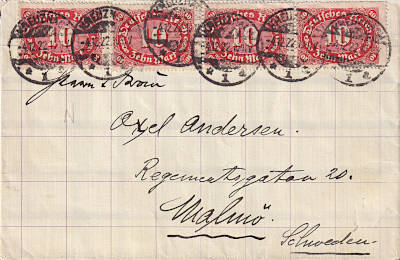 Deutsches Reich Deutsches Reich Deutsches Reich Deutsches Reich
10 10 10
Zehn Mark Zehn Mark Zehn Mark Zehn Mark
Herrn
Axel Andersen.
Regementsgatan 20.
Malmö.
Schweden.